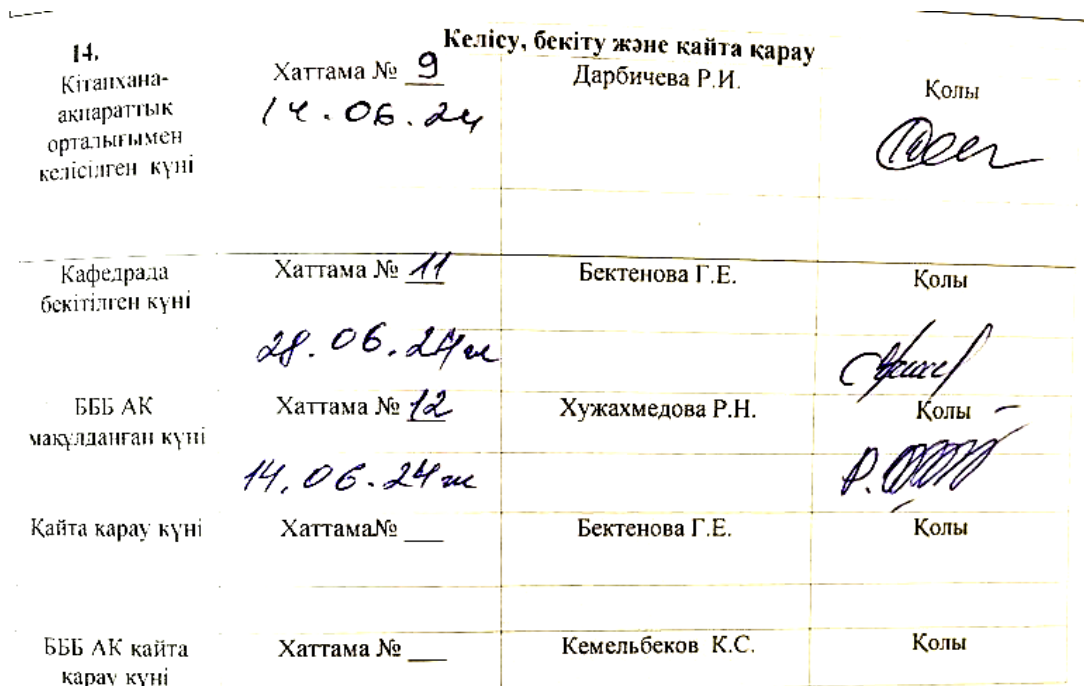 14. Келісу, бекіту және қайта қарау
Кітапхана-
ақпараттық
орталығымен
келісілген күні
Хаттама № 9
14.06.24
Дарбичева Р.И.
Қолы
Кафедрада
бекітілген күні
Хаттама № 11
28.06.24ж
Бектенова Г.Е.
Қолы
БББ АК
мақұлданған күні
Хаттама № 12
14.06.24ж
Хужахмедова Р.Н.
Қолы
Қайта қарау күні
Хаттама№ ___
Бектенова Г.Е.
Қолы
БББ АК қайта
қарау күні
Хаттама № ___
Кемельбеков К.С.
Қолы